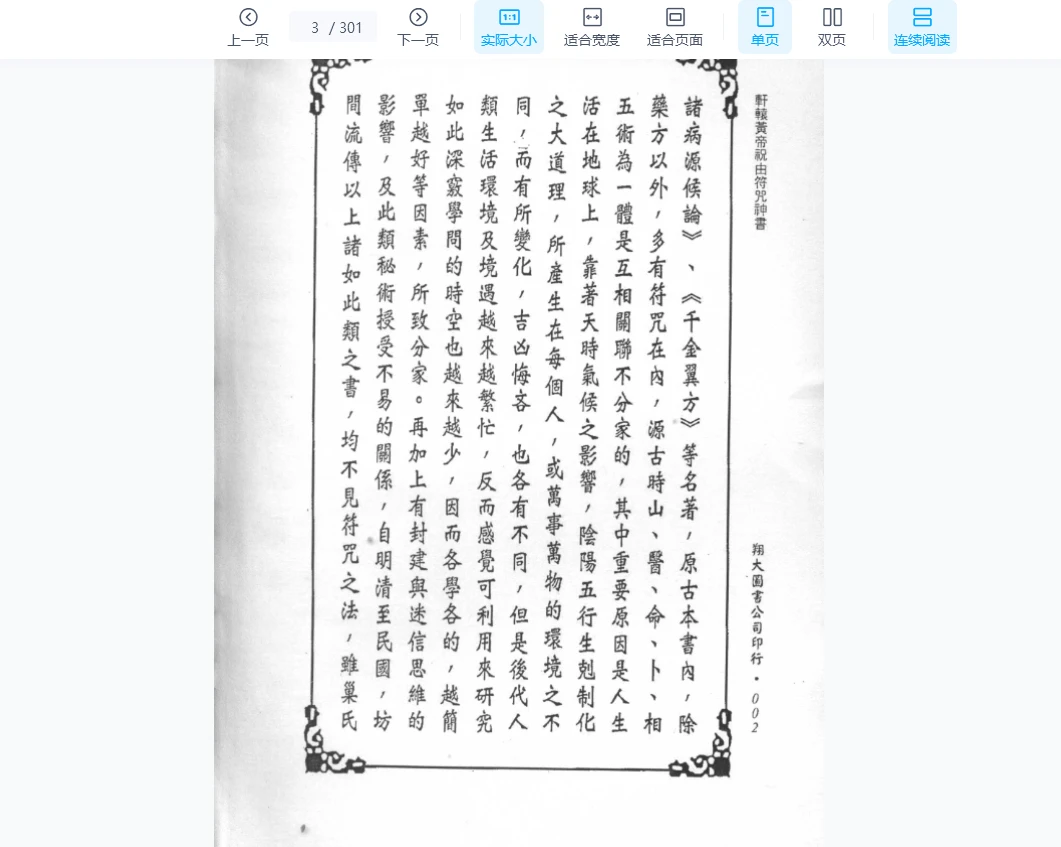 上一页
3 / 301
下一页
1:1
实际大小
适合宽度
适合页面
单页
双页
连续阅读
軒轅黃帝祝由符咒神書
翔大圖書公司印行・002
諸病源候論》、《千金翼方》等名著，原古本書內，除
藥方以外，多有符咒在內，源古時山、醫、命、卜、相
五術為一體是互相關聯不分家的，其中重要原因是人生
活在地球上，靠著天時氣候之影響，陰陽五行生剋制化
之大道理，所產生在每個人，或萬事萬物的環境之不
同，而有所變化，吉凶悔吝，也各有不同，但是後代人
類生活環境及境遇越來越繁忙，反而感覺可利用來研究
如此深竅學問的時空也越來越少，因而各學各的，越簡
單越好等因素，所致分家。再加上有封建與迷信思維的
影響，及此類秘術授受不易的關係，自明清至民國，坊
間流傳以上諸如此類之書，均不見符咒之法，雖巢氏